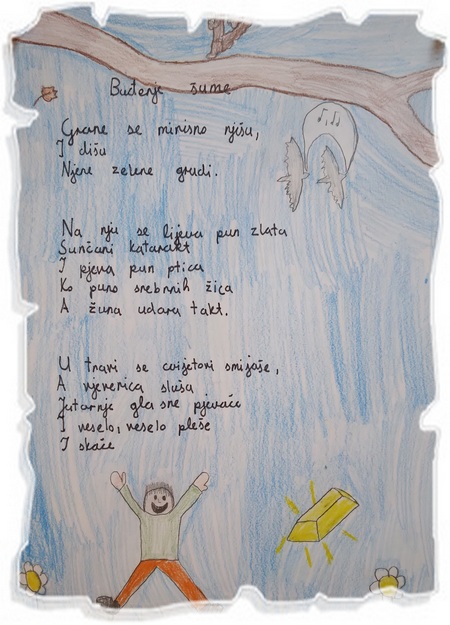 Buđenje šume
Grane se mirisno njišu,
I dišu
Njene zelene grudi.
Na nju se lijeva pun zlata
Sunčani katarakt
I pjeva pun ptica
Ko puno srebrnih žica
A žuna udara takt.
U travi se cvijetovi smijaše,
A vjeverica sluša
Jutarnje glasne pjevače
I veselo, veselo pleše
I skače